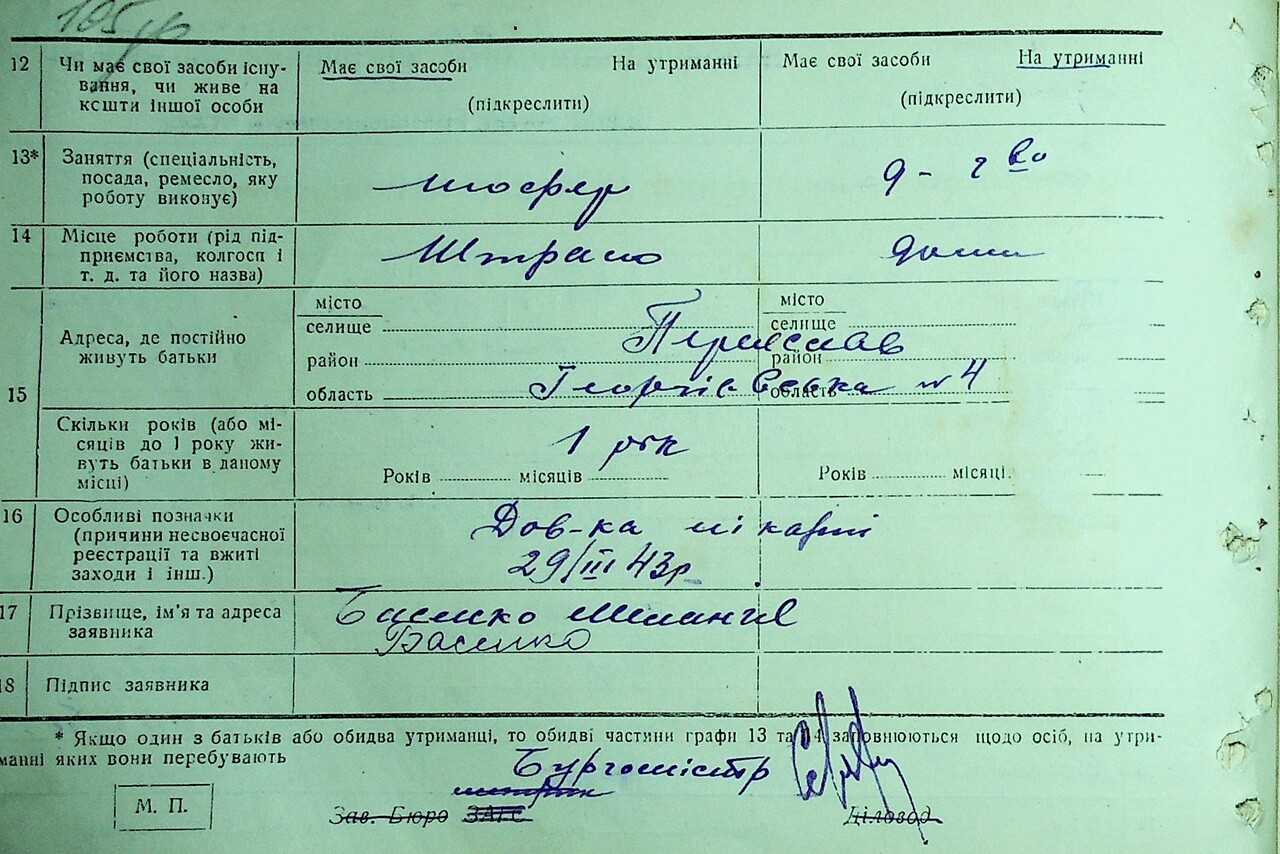 105
12 Чи має свої засоби існу-
вання, чи живе на
кошти іншої особи
Має свої засоби На утриманні
(підкреслити)
Має свої засоби На утриманні
(підкреслити)
13* Заняття (спеціальність,
посада, ремесло, яку
роботу виконує)
шофер
д-г во
14 Місце роботи (рід під-
приємства, колгосп і
т. д. та його назва)
дома
15 Адреса, де постійно
живуть батьки
місто
селище
район
область
місто
селище
район
область
Переяслав
Георгієвська № 4
Скільки років (або мі-
сяців до 1 року жи-
вуть батьки в даному
місці)
1 рік
Років місяців
Років місяці.
16 Особливі позначки
(причини несвоєчасної
реєстрації та вжиті
заходи і інш.)
Дов-ка лікарні
29/III 43р
17 Прізвище, ім'я та адреса
заявника
Басенко
Басенко
18 Підпис заявника
* Якщо один з батьків або обидва утриманці, то обидві частини графи 13 та 14 заповнюються щодо осіб, на утри-
манні яких вони перебувають
Бургомістр
М. П.
Зав. Бюро ЗАГС Діловод